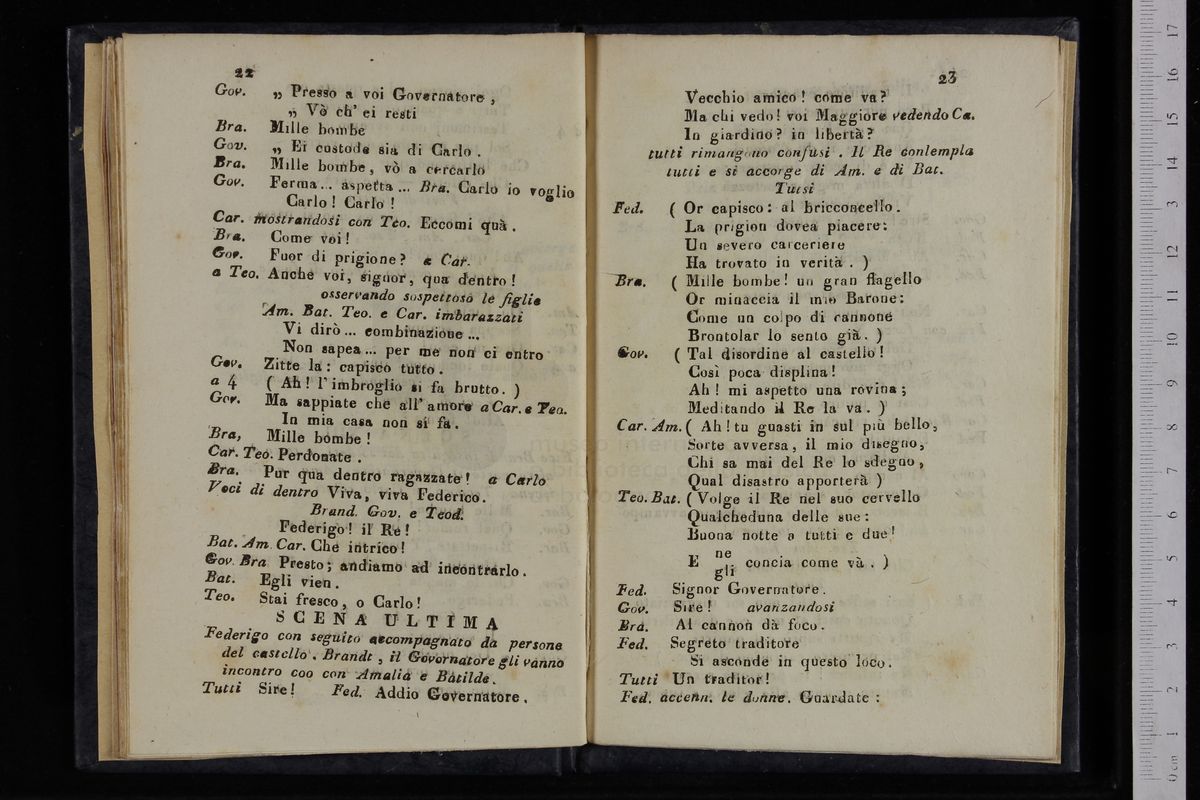 22
Gov. „ Presso a voi Governatore ,
„ Vò ch' ei resti
Bra. Mille bombe
Gov. „ Ei custode sia di Carlo .
Bra. Mille bombe, vò a cercarlo
Gov. Ferma... aspetta ... Bra. Carlo io voglio
Carlo ! Carlo !
Car. mostrandosi con Teo. Eccomi quà .
Bra. Come voi !
Gov. Fuor di prigione ? a Car.
a Teo. Anche voi, signor, qua dentro !
osservando sospettoso le figlie
Am. Bat. Teo. e Car. imbarazzati
Vi dirò ... combinazione ...
Non sapea ... per me non ci entro
Gov. Zitte la : capisco tutto .
a 4 ( Ah ! l' imbroglio si fa brutto . )
Gov. Ma sappiate che all' amore a Car. e Teo.
In mia casa non si fa .
Bra, Mille bombe !
Car. Teo. Perdonate .
Bra. Pur qua dentro ragazzate ! a Carlo
Voci di dentro Viva, viva Federico.
Brand. Gov. e Teod.
Federigo ! il Re !
Bat. Am. Car. Che intrico !
Gov. Bra Presto ; andiamo ad incontrarlo .
Bat. Egli vien .
Teo. Stai fresco, o Carlo !
SCENA ULTIMA
Federigo con seguito accompagnato da persone
del castello . Brandt , il Governatore gli vanno
incontro coo con Amalia e Batilde .
Tutti Sire ! Fed. Addio Governatore .
23
Vecchio amico ! come va ?
Ma chi vedo ! voi Maggiore vedendo Ca.
In giardino ? in libertà ?
tutti rimangono confusi . Il Re contempla
tutti e si accorge di Am. e di Bat.
Tutsi
Fed. ( Or capisco : al bricconcello .
La prigion dovea piacere :
Un severo carceriere
Ha trovato in verità . )
Bra. ( Mille bombe ! un gran flagello
Or minaccia il mio Barone :
Come un colpo di cannone
Brontolar lo sento già . )
Gov. ( Tal disordine al castello !
Così poca displina !
Ah ! mi aspetto una rovina ;
Meditando il Re la va . )
Car. Am. ( Ah ! tu guasti in sul più bello,
Sorte avversa, il mio disegno,
Chi sa mai del Re lo sdegno ,
Qual disastro apporterà )
Teo. Bat. ( Volge il Re nel suo cervello
Qualcheduna delle sue :
Buona notte a tutti e due !
E ne
gli concia come và . )
Fed. Signor Governatore .
Gov. Sire ! avanzandosi
Bra. Al cannon dà foco .
Fed. Segreto traditore
Si asconde in questo loco .
Tutti Un traditor !
Fed. accenn. le donne. Guardate :
0 cm 1 2 3 4 5 6 7 8 9 10 11 12 13 14 15 16 17